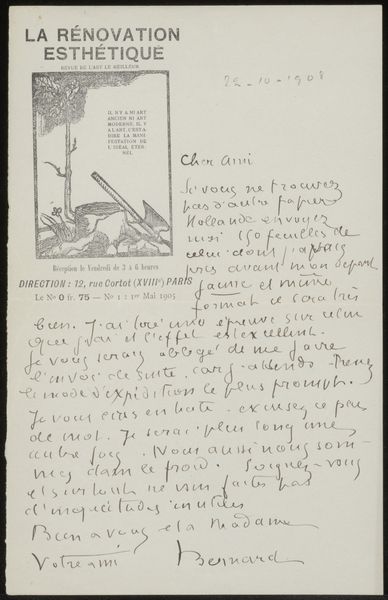 LA RÉNOVATION
ESTHÉTIQUE
REVUE DE L'ART LE MEILLEUR
IL N'Y A NI ART
ANCIEN NI ART
MODERNE, IL Y
A L'ART, C'EST A
DIRE LA MANI
FESTATION DE
L'IDEAL ETER-
NEL.
Réception le Vendredi de 3 à 6 heures
DIRECTION : 12, rue Cortot (XVIIIe) PARIS
Le No 0 fr. 75 — No 1 : 1er Mai 1905
22-10-1908
Cher ami
Si vous ne trouvez
pas d'autre papier
Hollande envoyez
moi 150 feuilles de
celui dont j'avais
pris avant mon départ
même
format ce sera très
bien. J'ai tiré une épreuve sur celui
que j'ai et l'effet est excellent.
Je vous serais obligé de me faire
l'envoi de suite, car j'attends. Prenez
le mode d'expédition le plus prompt.
Je vous écris en hate. excusez ce peu
de mot. Je serai plus long une
autre fois. Nous aussi nous som-
mes dans le froid. Soignez-vous
et surtout ne vous faites pas
d'inquiétudes inutiles
Bien a vous et a Madame
Votre ami Bernard